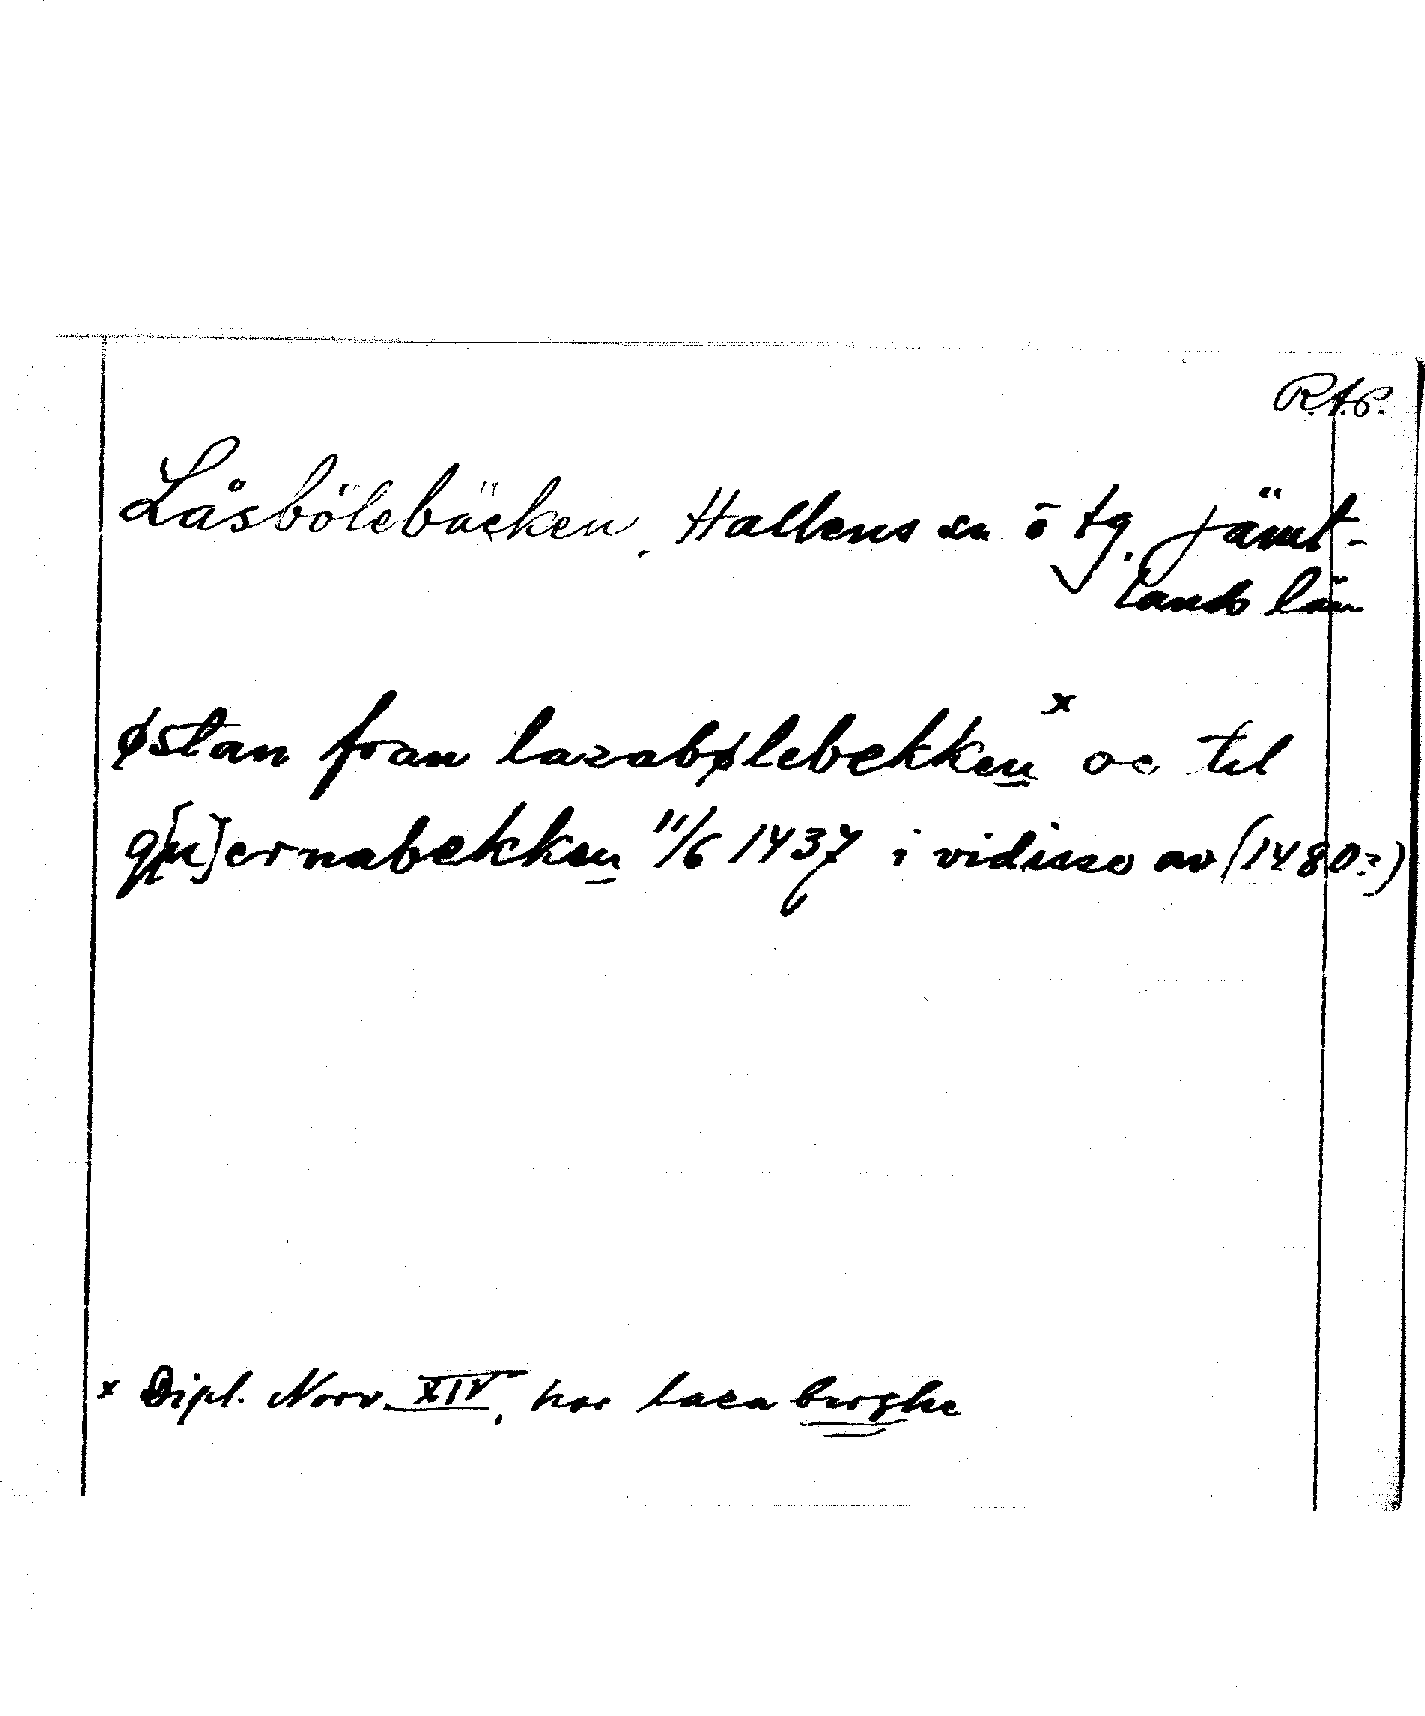 R.A.P.
Låsbölebäcken. Hallens sn ö tg. Jämt-
lands län
østan fran lazabølebekken x oc til
q[u]ernabekken 11/6 1437 i vidisse av (1480?)
x Dipl. Norv. XIV, har Laza berghe